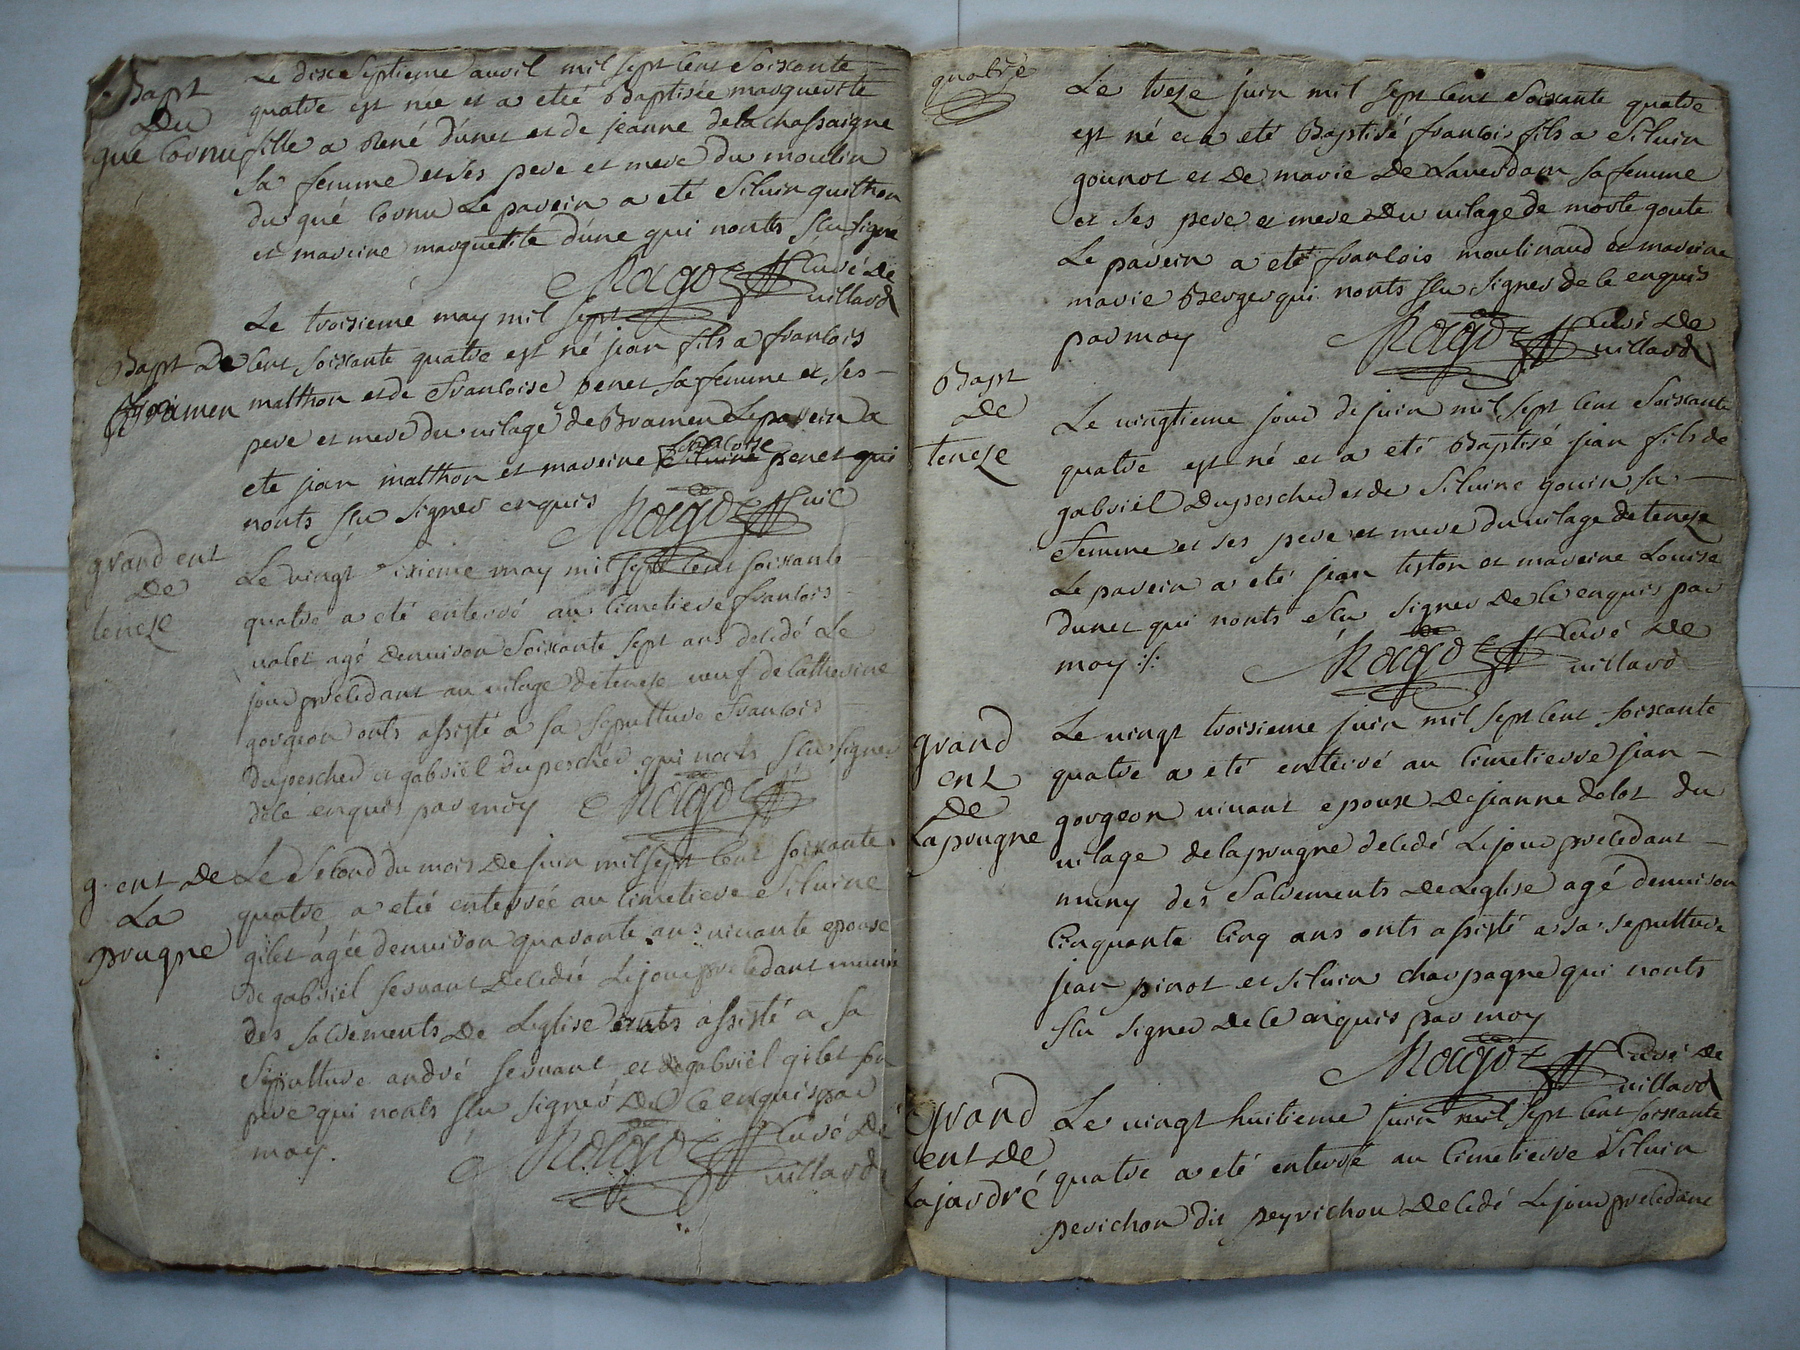 Bapt
Du
gué Cornu
Le dixe septieme auril mil sept Cent Soixante
quatre est née et a etié Baptisée marguerite
fille a René dunet et de jeanne dela Chassaigne
sa femme et ses pere et mere du moulin
du gué Cornu Le parein a eté Siluin
et mareine marguerite dune qui nonts sçu signé
Ragot Curé de
uillard
Bapt De
Bramen
Le troisieme may mil sept
Cent soixante quatre est né jean fils a francois
malthon et de francoise penet sa femme et ses
pere et mere du uilage de Bramen Le parein a
ete jean malthon et mareine francoise penet qui
nonts sçu signer enquis
Ragot
grand ent
De
teneze
Le vingt may mil sept Cent soixante
quatre a eté enterré au Cimetiere francois
ualet agé denuiron Soixante sept ans decedé Le
jour precedant au uilage de teneze ueuf de Catherine
gorgeon onts assisté a sa sepulture francois
Dupescher et gabriel dupescher qui nonts sçu signer
de Ce enquis par moy Ragot
g. ent De
La
prugne
Le Second du mois De juin mil sept Cent soixante
quatre a etié enterrée au Cimetiere Siluine
gilet agée denuiron quarante ans uiuante epouse
de gabriel seruant decedée Le jour precedant munie
des sacrements De Leglise onts assisté a sa
Sepulture andré seruant et gabriel gilet son
pere qui nonts sçu signer De Ce enquis par
moy.
Ragot Curé De
uillard
quatre
Le treze juin mil sept Cent Soixante quatre
est né et a eté Baptisé francois fils a Siluin
gounot et De marie De Lauerdam sa femme
et ses pere et mere Du uilage de morte goute
Le parein a eté francois moulinaud et mareine
marie Berger qui nonts sçu signer de Ce enquis
par moy
Ragot Curé De
uillard
Bapt
De
teneze
Le vingtieme jour de juin mil sept Cent Soixante
quatre est né et a eté Baptisé jean fils de
gabriel Dupescher et de Siluine gouin sa
femme et ses pere et mere du uilage de teneze
Le parein a eté jean teston et mareine Louise
dunet qui nonts sçu signer De Ce enquis par
moy
Ragot Curé De
uillard
grand
ent
De
La prugne
Le uingt troisieme juin mil sept Cent soixante
quatre a eté enterré au Cimetierre jean
gorgeon uiuant epoux De jeanne delot du
uilage de la prugne decedé Le jour precedant
muny des Sacrements De Leglise agé denuiron
Cinquante Cinq ans onts assisté a sa sepulture
jean pinot et siluin charpagne qui nonts
sçu signer de Ce enquis par moy
Ragot Curé De
uillard
grand
ent De
La jardré
Le uingt huitieme juin mil sept Cent soixante
quatre a eté enterré au Cimetierre Siluin
perichon dit peyrichou decedé Le jour precedant